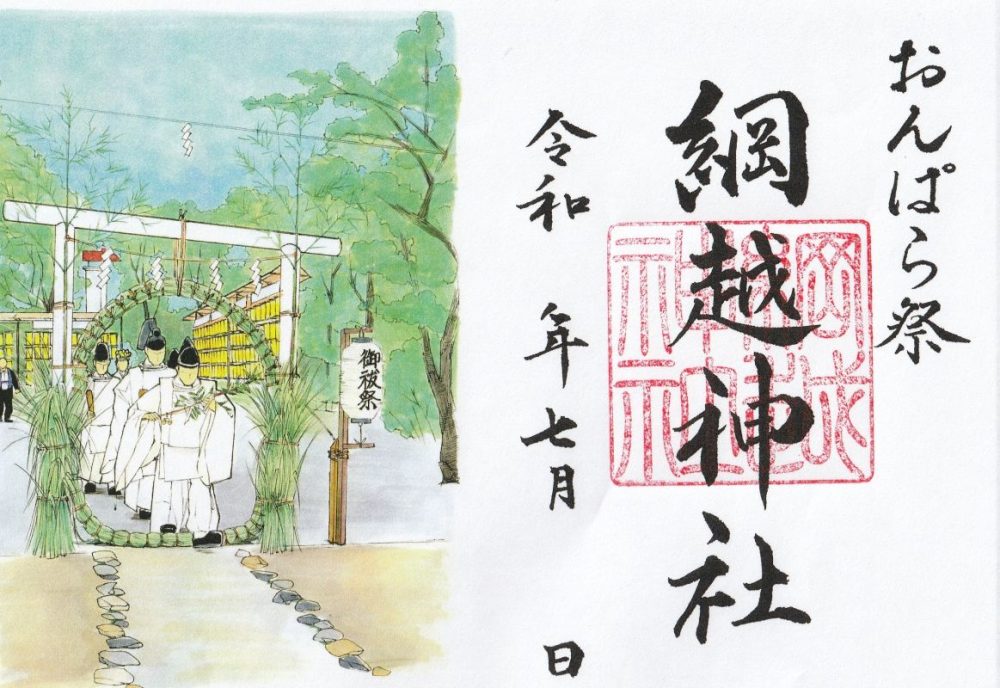 おんぱら祭
綱越神社
令和 年七月 日
御祓祭